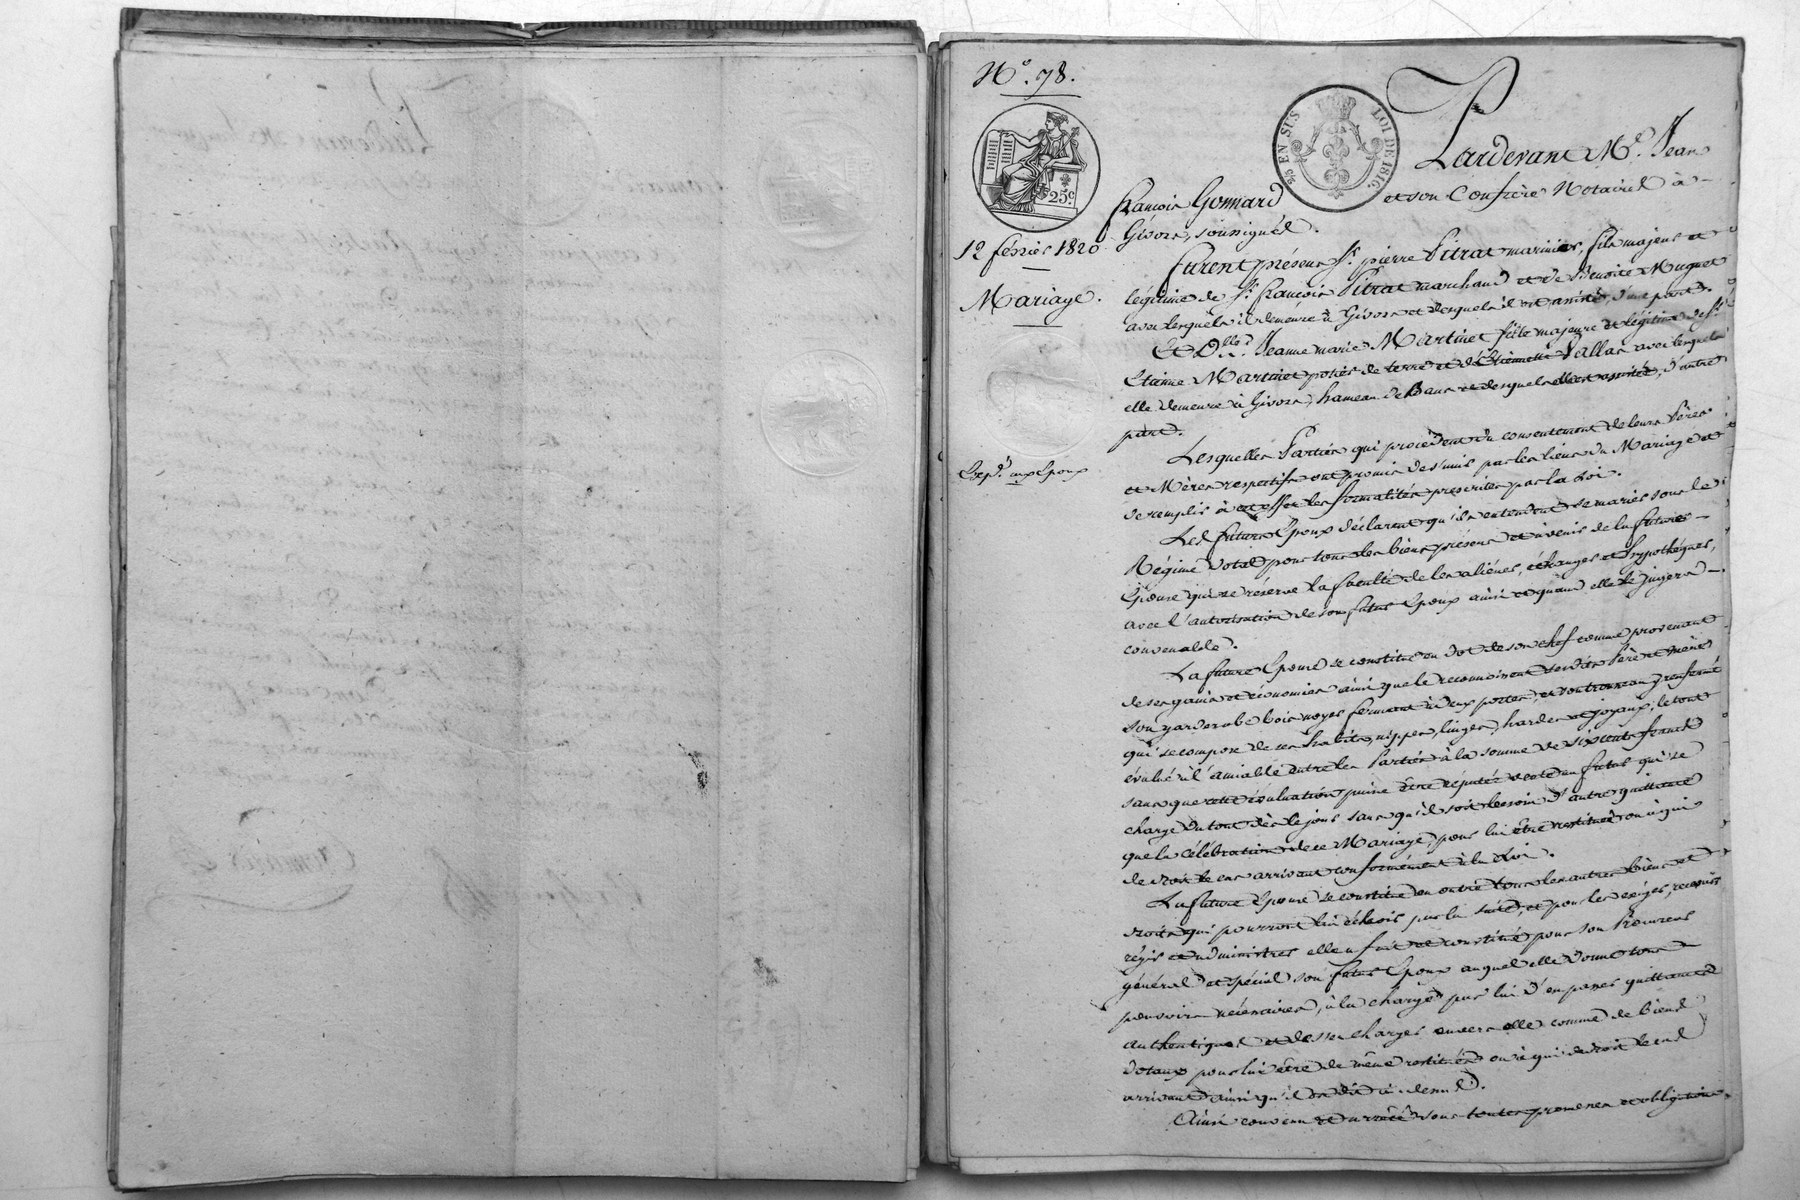 N.º 78.
25 EN SUS LOI DE 1816.
25c.
Pardevant Me. Jean
François Gonnard et son Confrère Notaires à
Givors, soussignés.
12 février 1820
Mariage.
Furent présens Sr. pierre Pitrat marinier, fils majeur et
légitime de Sr. françois Pitrat marchand et de Benoite Muguet
avec lesquels il demeure à Givors et desquels il est assisté, d'une part.
Et Dlle. Jeanne marie Martinet fille majeure et légitime de Sr.
Etienne Martinet potier de terre et d'Etiennette Vallas avec lesquels
elle demeure à Givors, hameau de Bans et desquels elle est assistée, d'autre
part.
Expé. aux Epoux
Lesquelles Parties qui procèdent du consentement de leurs Pères
et Mères respectifs ont promis de s'unir par les liens du Mariage et
de remplir à cet effet les formalités prescrites par la Loi.
Les futurs Epoux déclarent qu'ils entendent se marier sous le
Régime Dotal pour tous les biens présens et à venir de la future
Epouse qui se réserve la faculté de les aliéner, échanger et hypothéquer,
avec l'autorisation de son futur Epoux ainsi et quand elle le jugera
convenable.
La future Epouse se constitue en dot de son chef comme provenant
de ses gains et économies ainsi que le reconnoissent sesdits Père et mère
son garderobe bois noyer fermant à deux portes, et son trousseau y renfermé
qui se compose de ses habits, nippes, linges, hardes et joyaux, le tout
évalué à l'amiable entre les Parties à la somme de six cents francs
sans que cette évaluation puisse être réputée vente en futur qui se
charge du tout dès le jour sans qu'il soit besoin d'autre quittance
que la célébration de ce Mariage, pour lui être restitué ou à qui
de droit le cas arrivant conformément à la Loi.
La future Epouse se constitue en outre tous les autres biens et
droits qui pourront lui échoir par la suite, et pour les exiger, recevoir
régir et administrer elle a fait et constitué pour son Procureur
général et spécial son futur Epoux auquel elle donne tous
pouvoirs nécessaires, à la charge par lui d'en passer quittance
authentique et de s'en charger envers elle comme de biens
dotaux pour lui être de même restitués ou à qui de droit le cas
arrivant ainsi qu'il est dit ci-dessus.
Ainsi convenu et arrêté sous toutes promesses et obligations